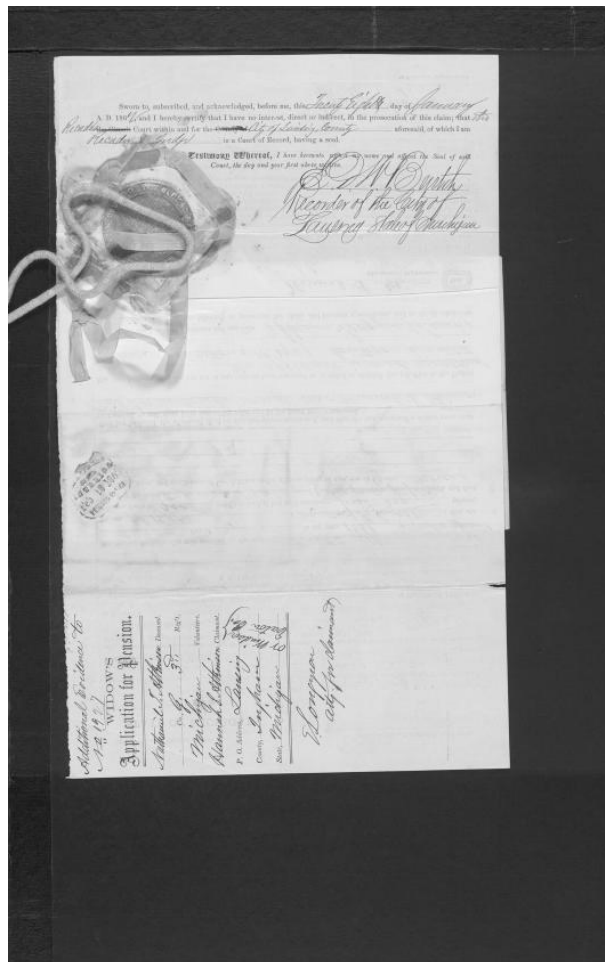 Sworn to, subscribed, and acknowledged, before me, this Twenty Eighth day of January
A. D. 186 and I hereby certify that I have no interest, direct or indirect, in the prosecution of this claim; that
Court within and for the City of Lansing County aforesaid, of which I am
is a Court of Record, having a seal.
In Testimony Whereof, I have hereunto my name and affixed the Seal of said
Court, the day and year first above
Recorder of the City of
Lansing State of Michigan
Additional Evidence to
No 1927
WIDOW'S
Application for Pension.
Nathaniel T. Atkinson Deceased
Co. G, 3d Regt.
Michigan Volunteers.
Hannah E. Atkinson Claimant.
P. O. Address, Lansing
County, Ingham
State, Michigan
Longyear
atty for claimant